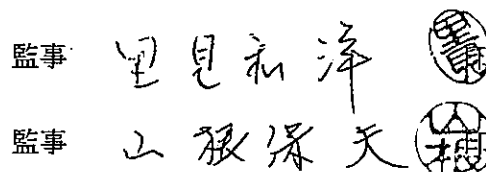 監事 里見和洋
監事 山根保夫 山根